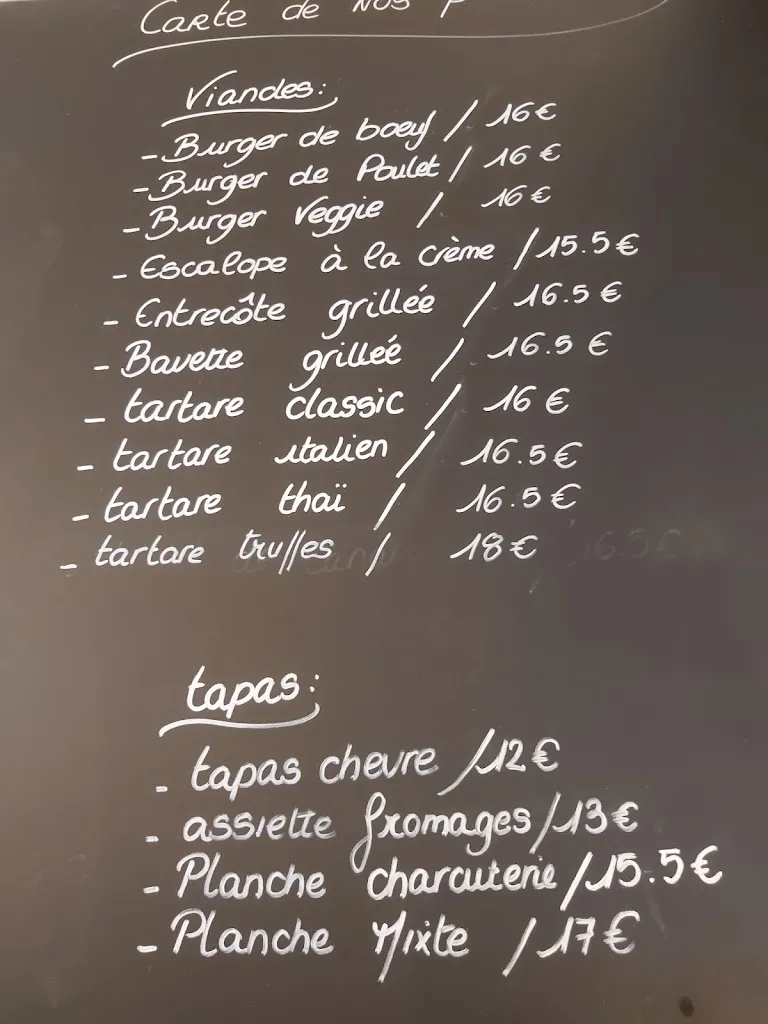 Carte de Nos
Viandes:
- Burger de boeuf / 16€
- Burger de Poulet / 16 €
- Burger Veggie / 16 €
- Escalope à la crème / 15.5 €
- Entrecôte grillée / 16.5 €
- Bavette grillée / 16.5 €
- tartare classic / 16 €
- tartare italien / 16.5 €
- tartare thaï / 16.5 €
- tartare truffes / 18 €
tapas:
- tapas chevre / 12 €
- assiette fromages / 13 €
- Planche charcuterie / 15.5 €
- Planche Mixte / 17 €